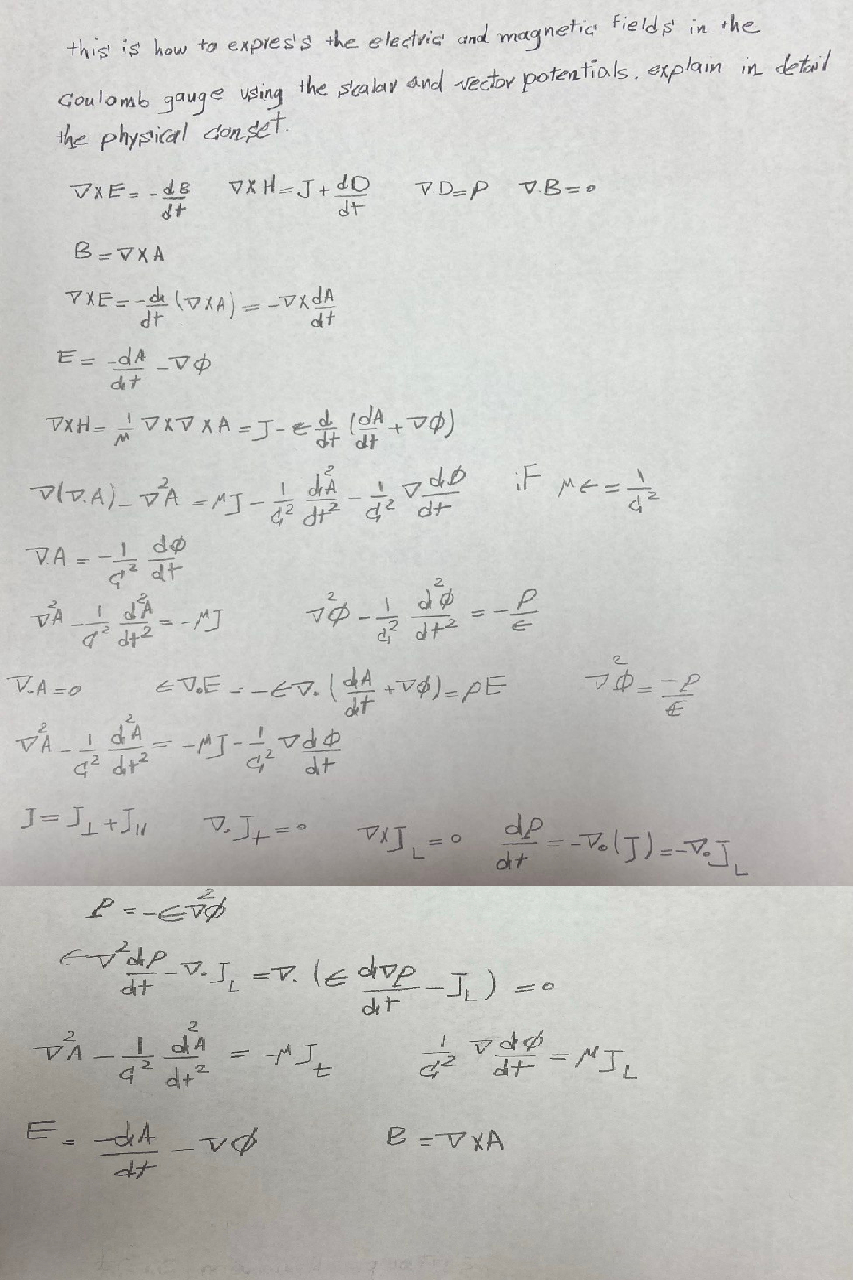 this is how to express the electric and magnetic fields in the
Coulomb gauge using the scalar and vector potentials. explain in detail
the physical conset.
∇×E = -dB/dt ∇×H = J + dD/dt ∇D = ρ ∇.B = 0
B = ∇×A
∇×E = -d/dt (∇×A) = -∇×dA/dt
E = -dA/dt - ∇φ
∇×H = 1/μ ∇×∇×A = J - ϵ d/dt (dA/dt + ∇φ)
∇(∇.A) - ∇²A = μJ - 1/c² d²A/dt² - 1/c² ∇ dφ/dt if μϵ = 1/c²
∇.A = -1/c² dφ/dt
∇²A - 1/c² d²A/dt² = -μJ ∇²φ - 1/c² d²φ/dt² = -ρ/ϵ
∇.A = 0 ϵ∇.E = -ϵ∇.(dA/dt + ∇φ) = ρE ∇²φ = -ρ/ϵ
∇²A - 1/c² d²A/dt² = -μJ - 1/c² ∇dφ/dt
J = J⊥ + J∥ ∇.J⊥ = 0 ∇×J_L = 0 dρ/dt = -∇.(J) = -∇.J_L
ρ = -ϵ∇²φ
ϵ∇²dρ/dt - ∇.J_L = ∇.(ϵ d∇ρ/dt - J_L) = 0
∇²A - 1/c² d²A/dt² = -μJ_t 1/c² ∇dφ/dt = μJ_L
E = -dA/dt - ∇φ B = ∇×A